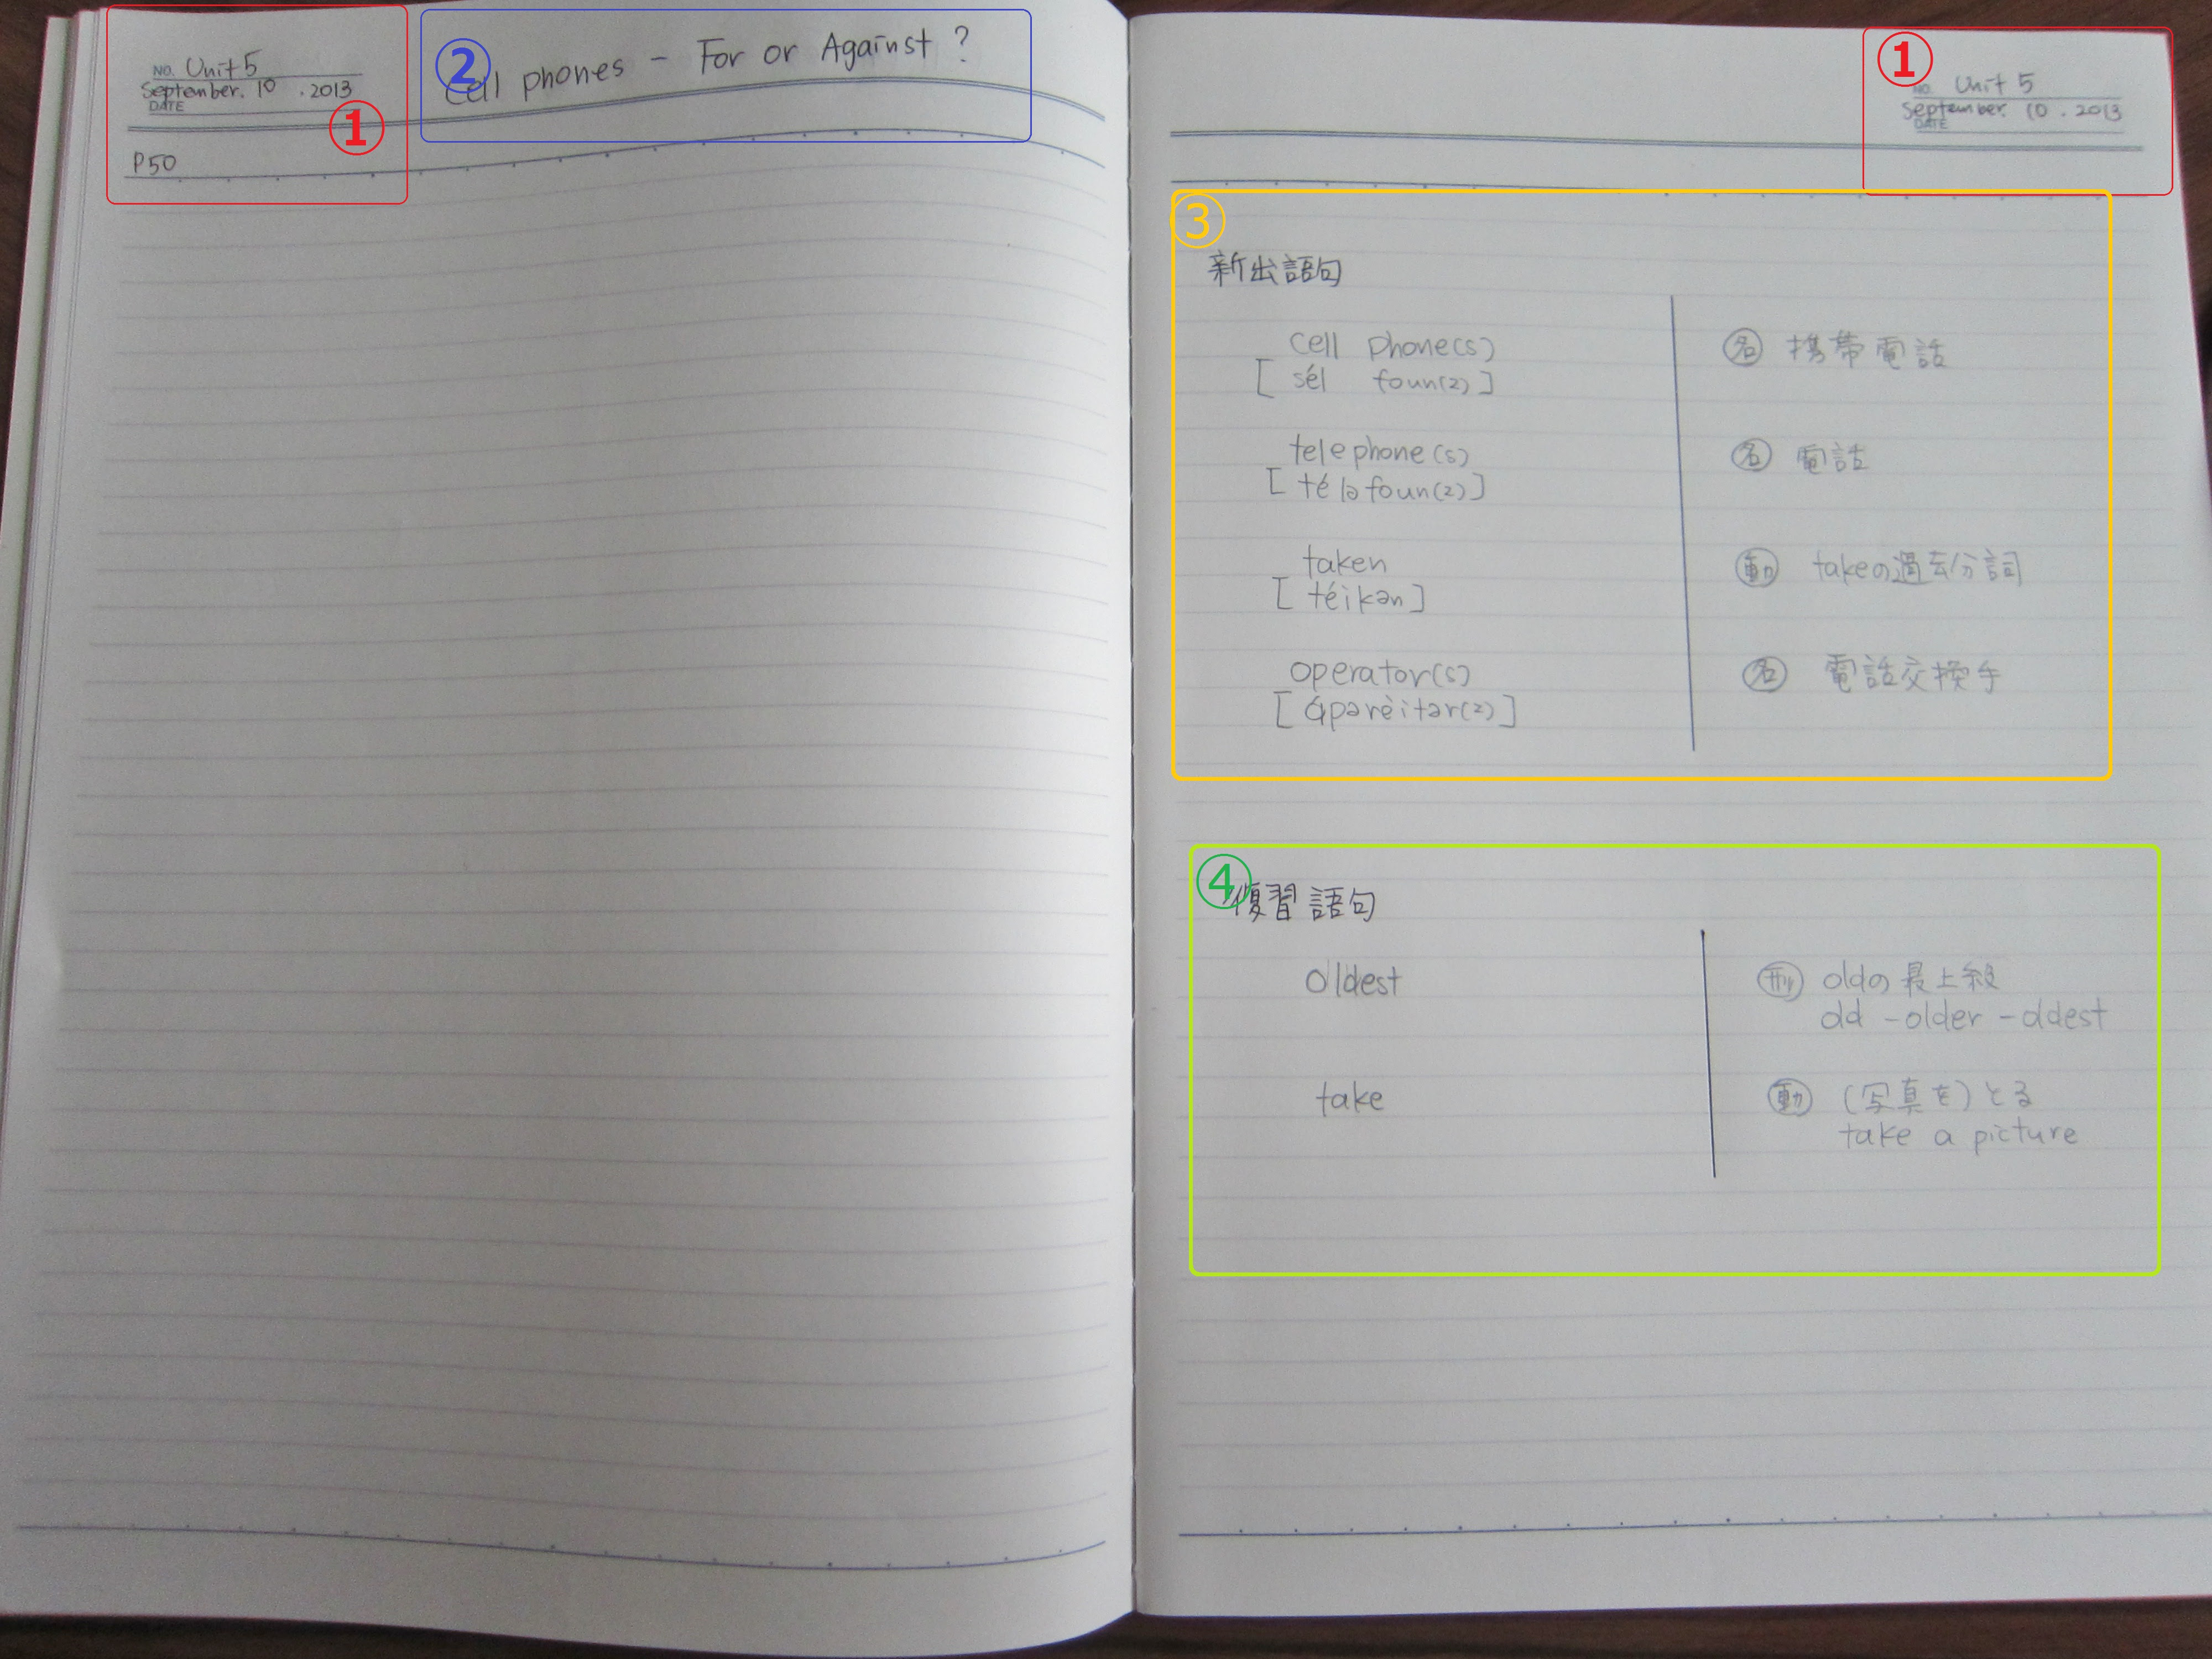 NO. Unit 5
September. 10 . 2013
DATE
①
② Cell phones - For or Against ?
P50
①
NO. Unit 5
September. 10 . 2013
DATE
③
新出語句
cell phone(s) 名 携帯電話
[ sél foun(z) ]
telephone(s) 名 電話
[ téləfoun(z) ]
taken 動 takeの過去分詞
[ téikən ]
operator(s) 名 電話交換手
[ ápərèitər(z) ]
④
復習語句
oldest 形 oldの最上級
old - older - oldest
take 動 (写真を)とる
take a picture